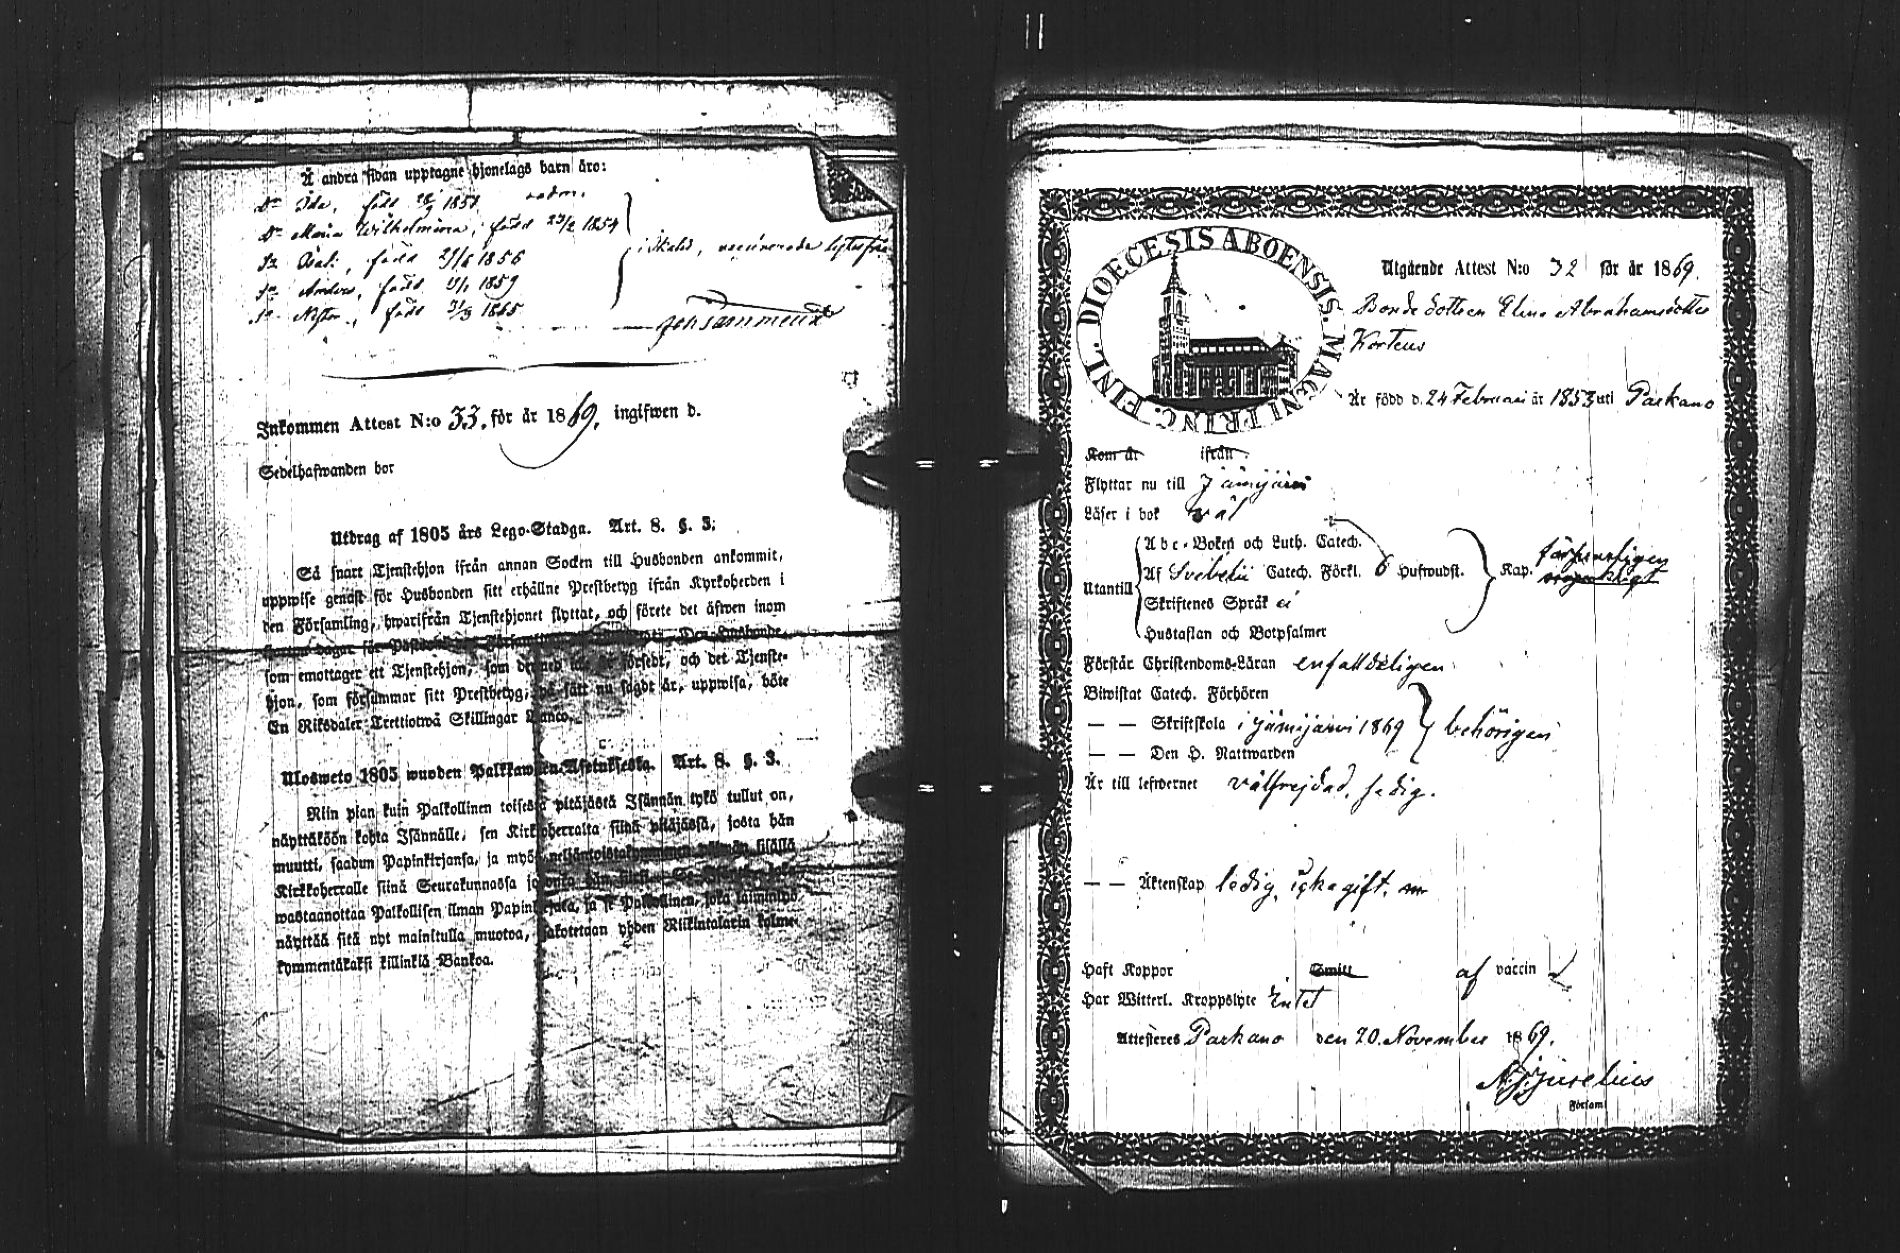 Å andra sidan upptagne hjonelags barn äro:
Dr Ida, född 1851
Dr Maria Wilhelmina, född 23/2 1854
Sn Isak, född 1856
Sn Anders, född 1859
Sn född 1865
vaccinerade lytesfria
Inkommen Attest N:o 33. för år 1869. ingifwen d.
Sedelhafwanden bor
Utdrag af 1805 års Lego-Stadga. Art. 8. §. 3:
Så snart Tjenstehjon ifrån annan Socken till Husbonden ankommit,
uppwise genast för Husbonden sitt erhållne Prestbetyg ifrån Kyrkoherden i
den Församling, hwarifrån Tjenstehjonet flyttat, och förete det äfwen inom
dagar för Den Husbonde,
som emottager ett Tjenstehjon, som försedt, och det Tjenste-
hjon, som försummar sitt Prestbetyg, på sätt nu sagdt är, uppwisa, böte
En Riksdaler Trettiotwå Skillingar Banco.
Ulosweto 1805 wuoden Palkkawäen Asetuksesta. Art. 8. §. 3.
Niin pian kuin Palkollinen toisesta pitäjästä Isännän tykö tullut on,
näyttäköön kohta Isännälle, sen Kirkkoherralta siinä pitäjässä, josta hän
muutti, saadun Papinkirjansa, ja myös neljäntoistakymmenen päiwän sisällä
Kirkkoherralle siinä Seurakunnassa johonka hän
wastaanottaa Palkollisen ilman Papinkirjata, ja se Palkollinen, joka laiminlyö
näyttää sitä nyt mainitulla muotoa, sakotetaan yhden Riikintalarin kolme-
kymmentäkaksi killinkiä Bankoa.
DIOECESIS ABOENSIS. MAGNI PRINC. FINL.
Utgående Attest N:o 32 för år 1869.
Bonde dottren Elina Abrahamsdotter
Korteus
Är född d. 24 Februari år 1853 uti Parkano
Kom år ifrån
Flyttar nu till Jämijärvi
Läser i bok väl
Utantill
Abc-Boken och Luth. Catech.
Af Svebelii Catech. Förkl. 6 Hufwudst.
Skriftenes Språk ej
Hustaflan och Botpsalmer
Kap.
Förstår Christendoms-Läran enfalldeligen
Biwistat Catech. Förhören
— — Skriftskola i Jämijärvi 1869
— — Den H. Nattwarden
behörigen
Är till lefwernet välfrejdad, ledig.
— — Äktenskap ledig, icke gift.
Haft Koppor Smitt af vaccin
Har Witterl. Kroppslyte Intet
Attesteres Parkano den 20. November 1869.
Jurelius
Församl